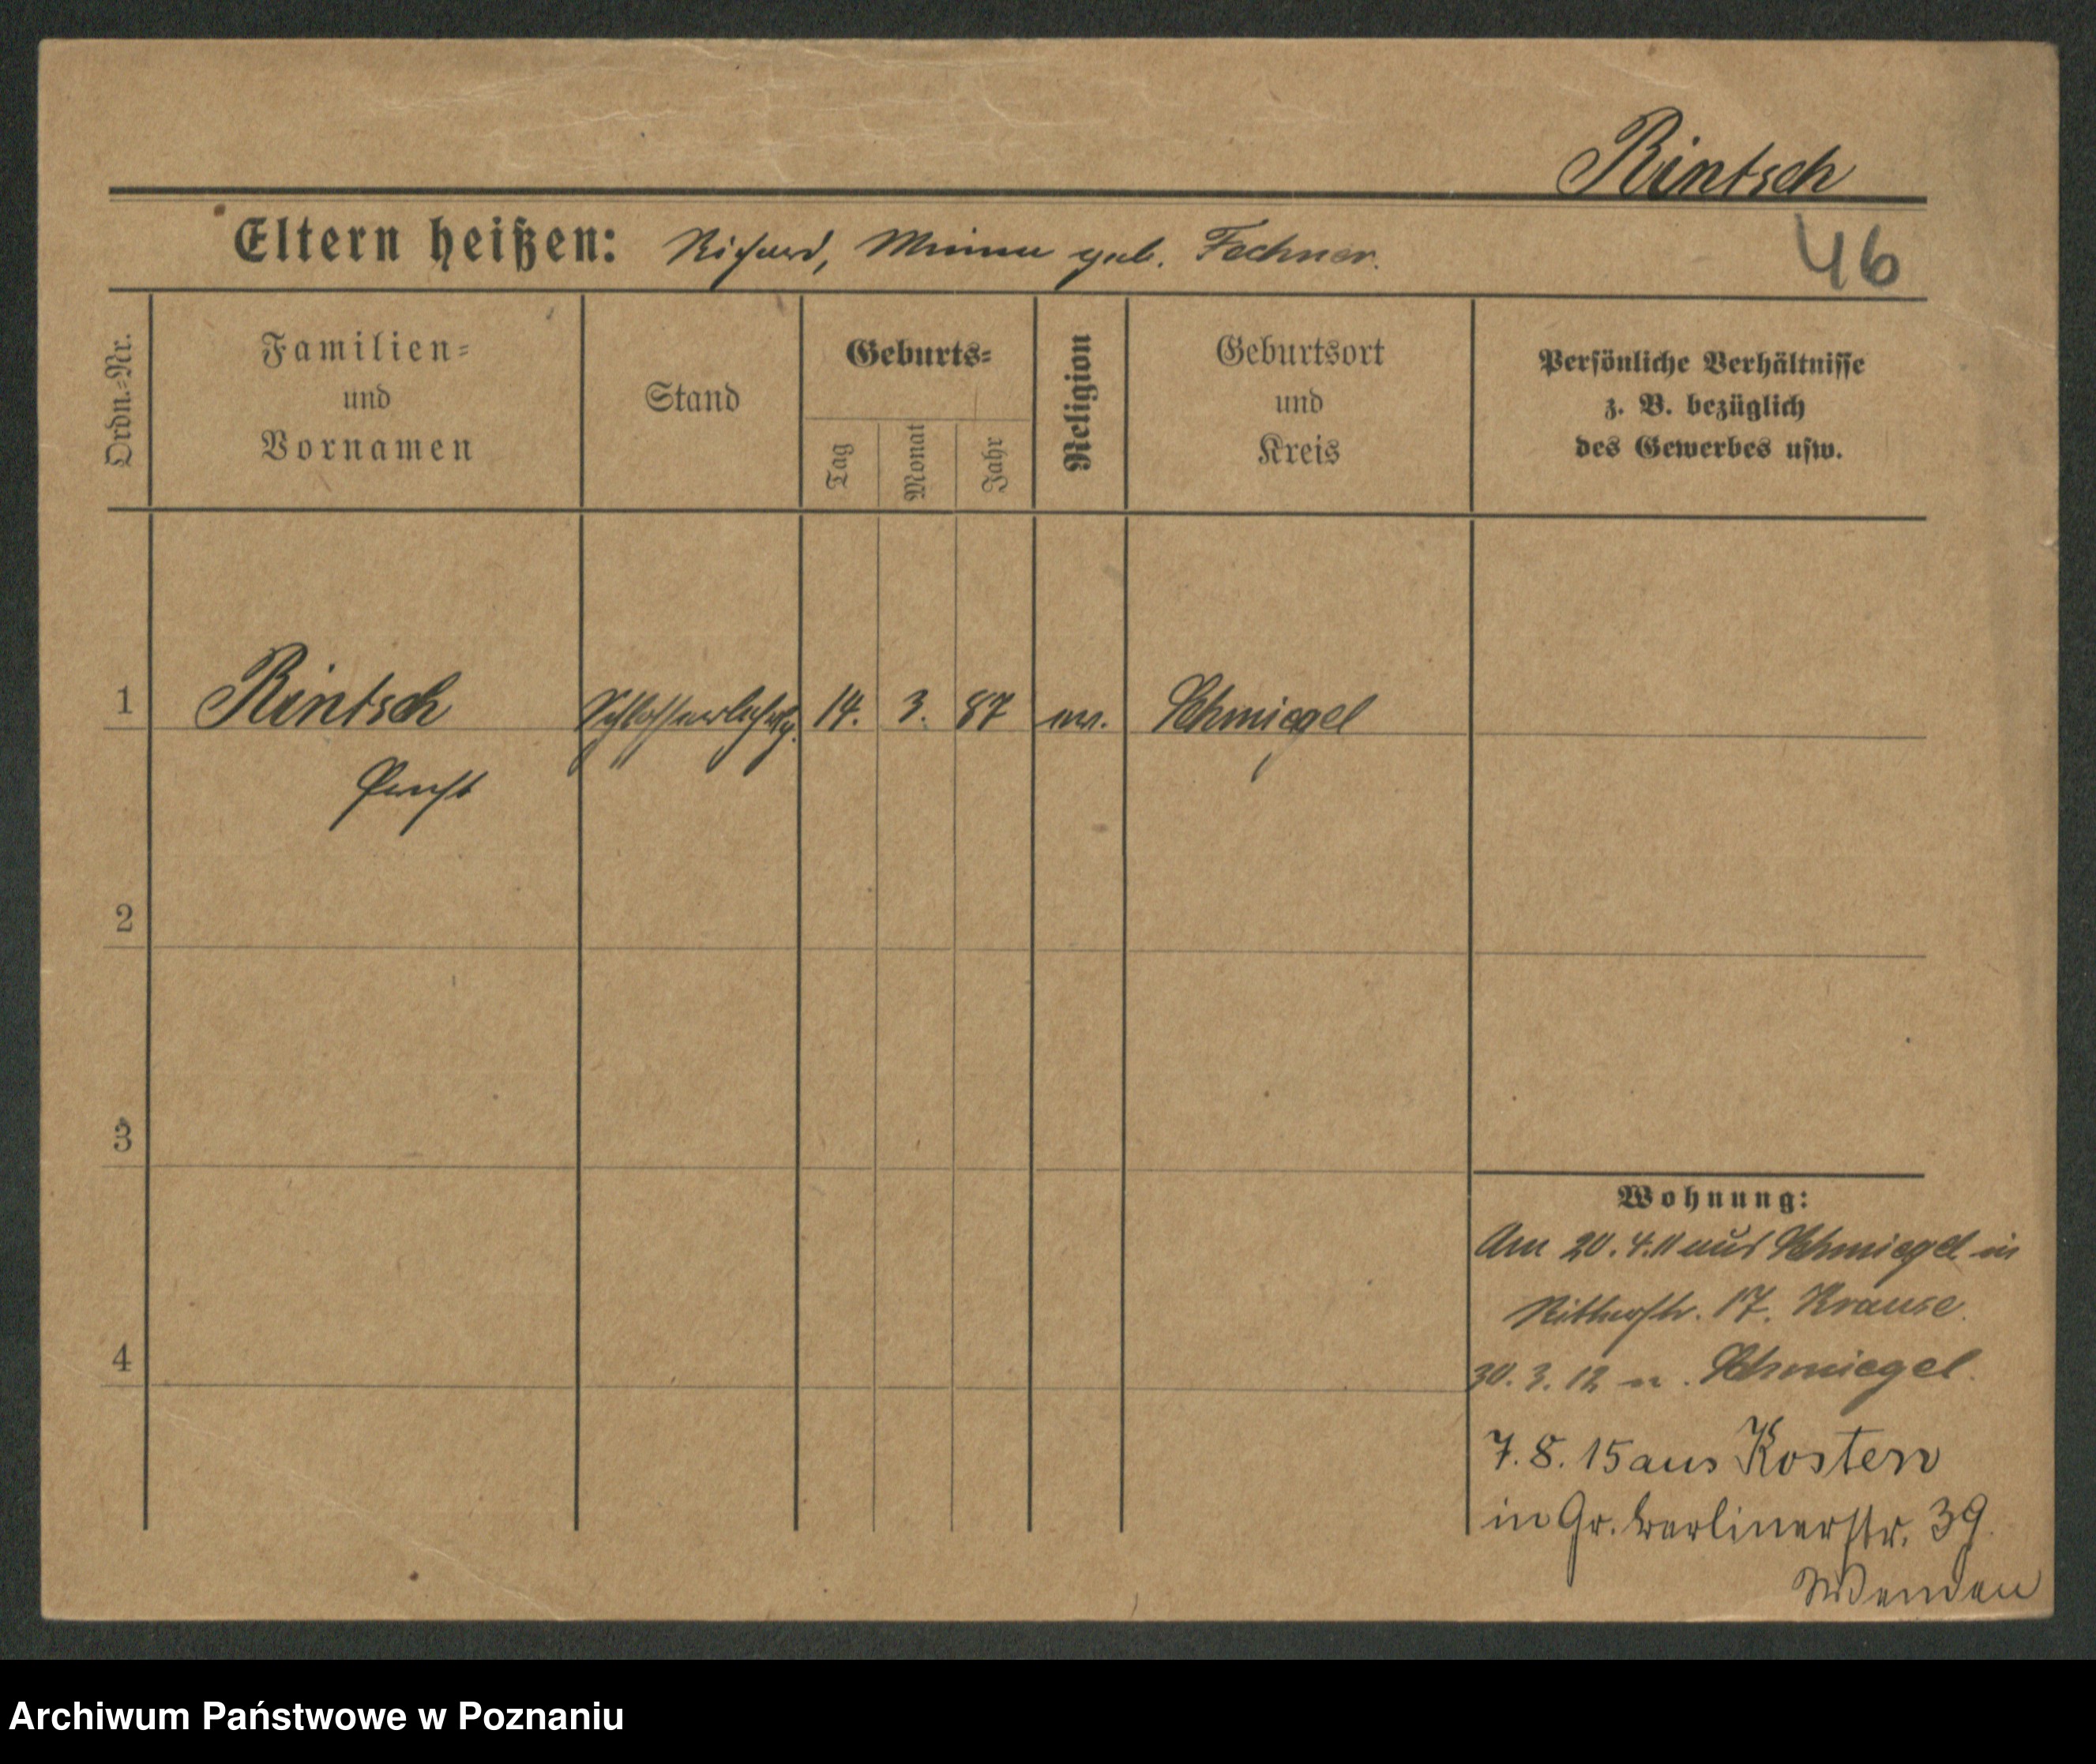 Rintsch
Eltern heißen: Richard, Minna geb. Fechner.
46
Ordn.-Nr.
Familien-
und
Vornamen
Stand
Geburts-
Tag
Monat
Jahr
Religion
Geburtsort
und
Kreis
Persönliche Verhältnisse
z. B. bezüglich
des Gewerbes usw.
1 Rintsch 14. 3. 87 ev. Schmiegel
Ernst
2
3
4
Wohnung:
Am 20.4.11 aus Schmiegel in
Ritterstr. 17. Krause.
30.3.12 n. Schmiegel.
7.8.15 aus Kosten
in Gr. Berlinerstr. 39.
Wenden
Archiwum Państwowe w Poznaniu